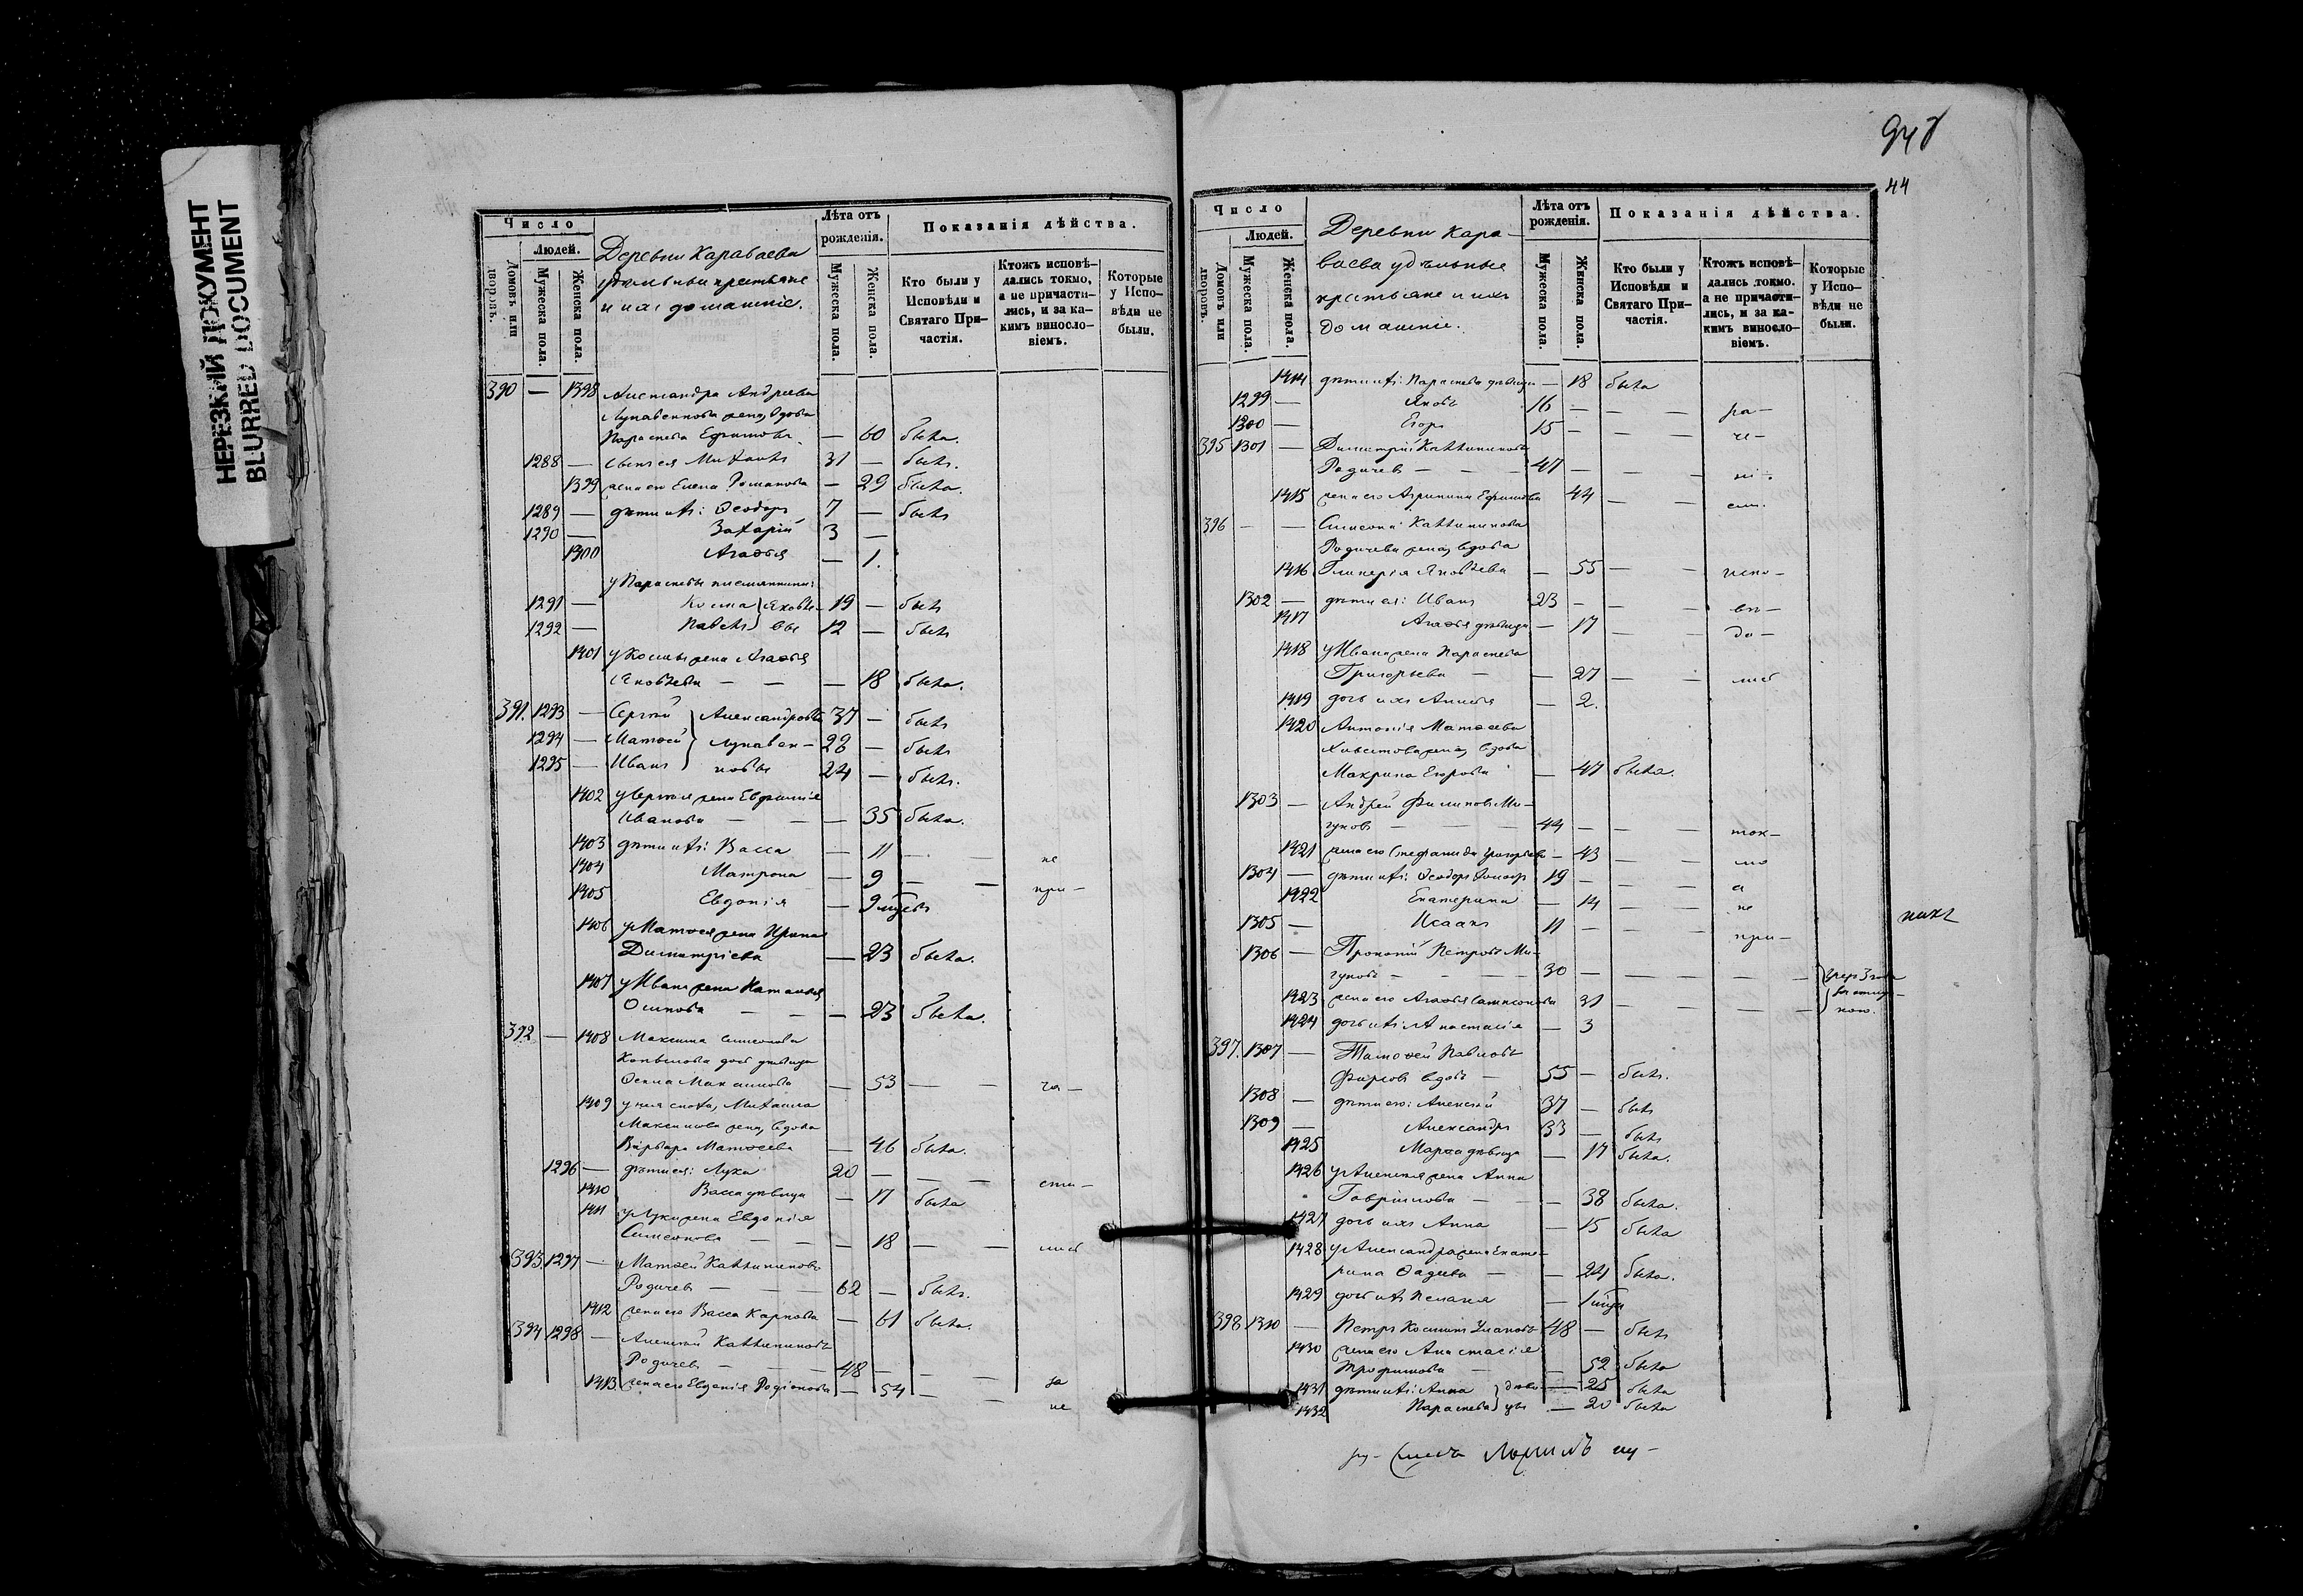 НЕРЕЗКИЙ ДОКУМЕНТ
BLURRED DOCUMENT
Число
Людей.
Домовъ или дворовъ.
Мужеска пола.
Женска пола.
Деревни Караваева
удѣльные крестьяне
и ихъ домашніе.
Лѣта отъ рожденія.
Мужеска пола.
Женска пола.
Показанія дѣйства.
Кто были у Исповѣди и Святаго Причастія.
Ктожъ исповѣдались токмо, а не причастились, и за какимъ винословіемъ.
Которые у Исповѣди не были.
390 — 1398 Александра Андреева
жена, вдова
Параскева Ефимова — 60 была.
1288 — Михаилъ 31 — былъ.
1399 жена его Елена Романова — 29 была.
1289 — дѣти ихъ: Ѳеодоръ 7 — былъ
1290 — Захарій 3 —
1300 Агаѳья — 1.
у Параскевы племянники:
1291 — Косма } Яковле- 19 — былъ
1292 — Павелъ } вы 12 — былъ
1401 у Космы жена Агаѳья
Яковлева — — — 18 была.
391. 1293 — Сергѣй } Александровы 37 — былъ
1294 — Матѳей } 28 — былъ
1295 — Иванъ } 24 — былъ.
1402 у Сергѣя жена Евфимія
Иванова — — — 35 была.
1403 дѣти ихъ: Васса — 11 — — не
1404 Матрона — 9 — — при-
1405 Евдокія — 9
1406 у Матѳея жена Ирина
Димитріева — 23 была.
1407 у Ивана жена Наталья
Осипова — — — 23 была.
392 — 1408 Максима Симеонова
дочь дѣвица
Ѳекла Максимова — 53 — — ча-
1409 у нея сноха, Михаила
Максимова жена, вдова
Варвара Матѳеева — 46 была.
1296 — дѣти ея: Лука 20 — — — сти-
1410 Васса дѣвица — 17 была
1411 у Луки жена Евдокія
Симеонова — — — 18 — — лись
393 1297 — Матѳей Каллиниковъ
Родичевъ — — — 62 — былъ.
1412 жена его Васса Карпова — 61 была.
394 1298 — Алексѣй Каллиниковъ
Родичевъ — — — 48 — — — за
1413 жена его Евдокія Родіонова — 54 — — не
948
44
Число
Людей.
Домовъ или дворовъ.
Мужеска пола.
Женска пола.
Деревни Кара-
ваева удѣльные
крестьяне и ихъ
домашніе.
Лѣта отъ рожденія.
Мужеска пола.
Женска пола.
Показанія дѣйства.
Кто были у Исповѣди и Святаго Причастія.
Ктожъ исповѣдались токмо. а не причастились, и за какимъ винословіемъ.
Которые у Исповѣди не были.
1414 дѣти ихъ: Параскева дѣвица — 18 была
1299 — Яковъ 16 — — — ра-
1300 — Егоръ 15 — — — че-
395 1301 — Димитрій Каллиниковъ
Родичевъ — — 47 — — — ні-
1415 жена его Агрипина Ефимова 44 — — ем.
396 — — Симеона Каллиникова
Родичева жена, вдова
1416 Гликерія Яковлева — 55 — — испо-
1302 — дѣти ея: Иванъ 23 — — — вѣ-
1417 Агаѳья дѣвица — 17 — — да-
1418 у Ивана жена Параскева
Григорьева — — 27 — — лись
1419 дочь ихъ — 2.
1420 Антонія Матѳеева
жена, вдова
Макрина Егорова — 47 была.
1303 — Андрей Филиповъ Ми-
гуновъ — — — 44 — — — ток-
1421 жена его Стефанида Григорьева — 43 — — мо
1304 — дѣти ихъ: Ѳеодоръ холостъ 19 — — — а
1422 Екатерина — 14 — — не
1305 — Исаакъ 11 — — — при-
нихъ
1306 — Прокопій Петровъ Ми-
гуновъ — — — 30 — — — — —
1423 жена его Агаѳья Самсонова 31 — — — —
1424 дочь ихъ Анастасія — 3
397. 1307 — Матѳей Павловъ
Фирсовъ вдовъ — 55 — былъ.
1308 — дѣти его: Алексѣй 37 — былъ
1309 — Александръ 33 — былъ
1425 Марѳа дѣвица — 17 была.
1426 у Алексѣя жена Анна
Гавріилова — — — 38 была.
1427 дочь ихъ Анна — 15 была
1428 у Александра жена Екате-
рина Фадеева — — 24 была.
1429 дочь ихъ Пелагія — 1
398 1310 — Петръ Косминъ 48 — былъ
1430 жена его Анастасія
Трофимова — — 52 была
1431 дѣти ихъ: Анна } дѣви- — 25 была
1432 Параскева } цы — 20 была